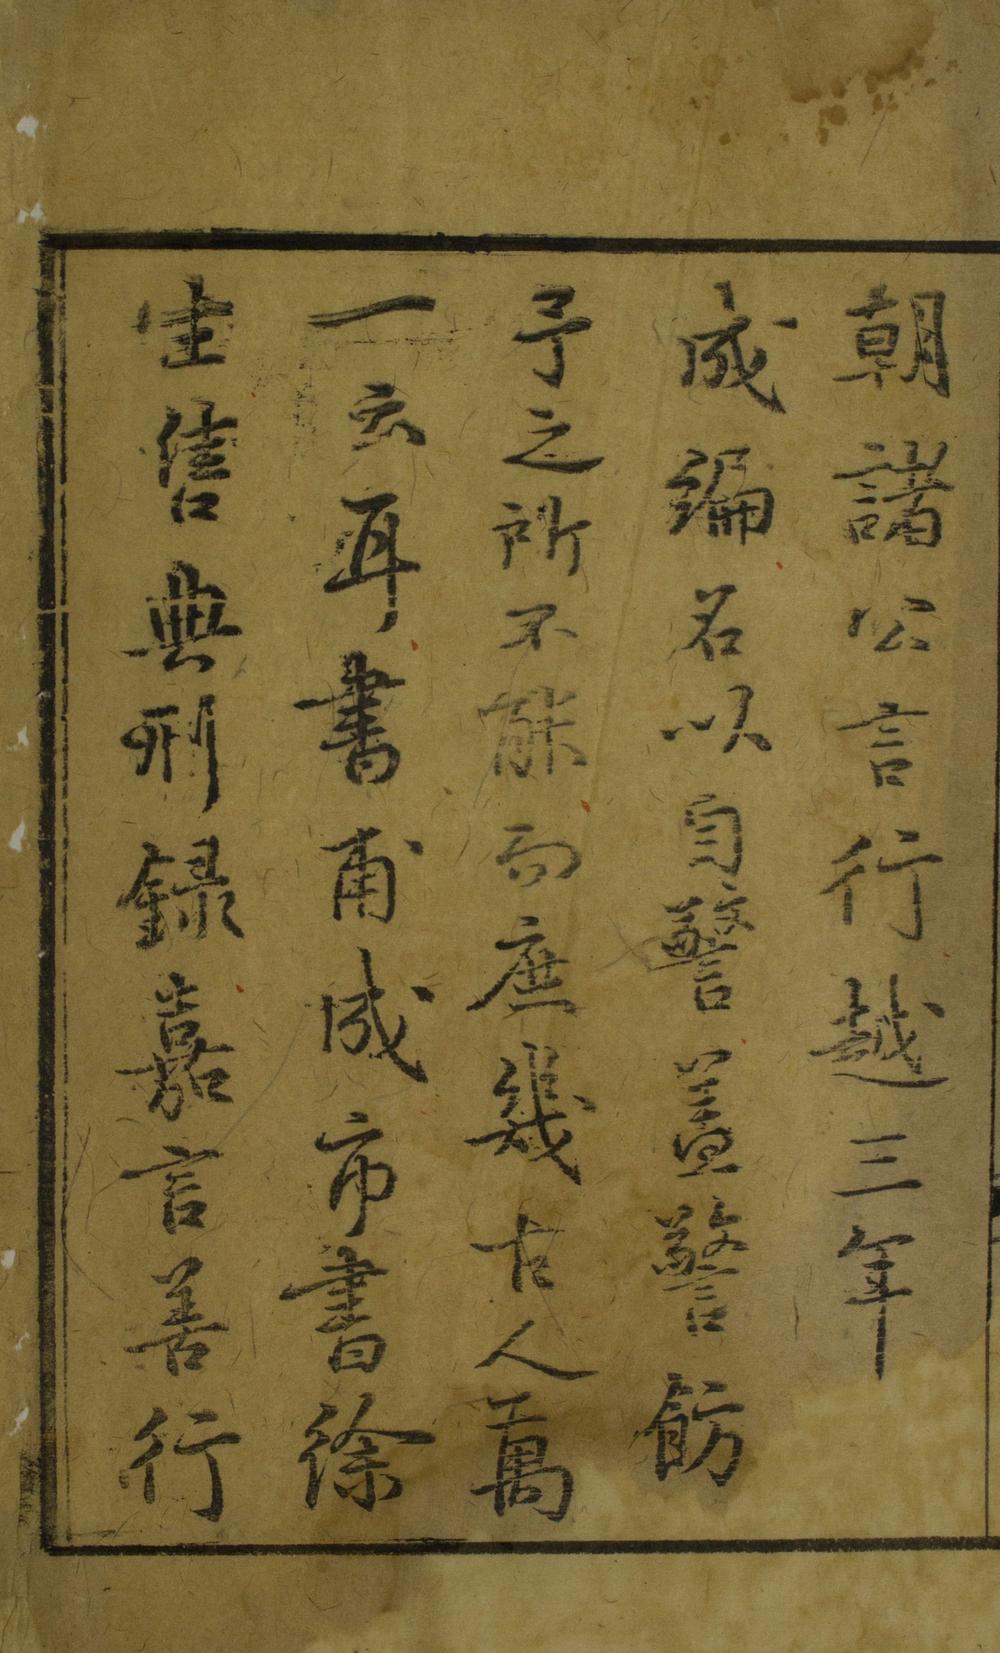 朝諸公言行越三年
成編名以自警葢警飭
予之所不能而庶幾古人萬
一云耳書甫成市書徐
生售典刑録嘉言善行